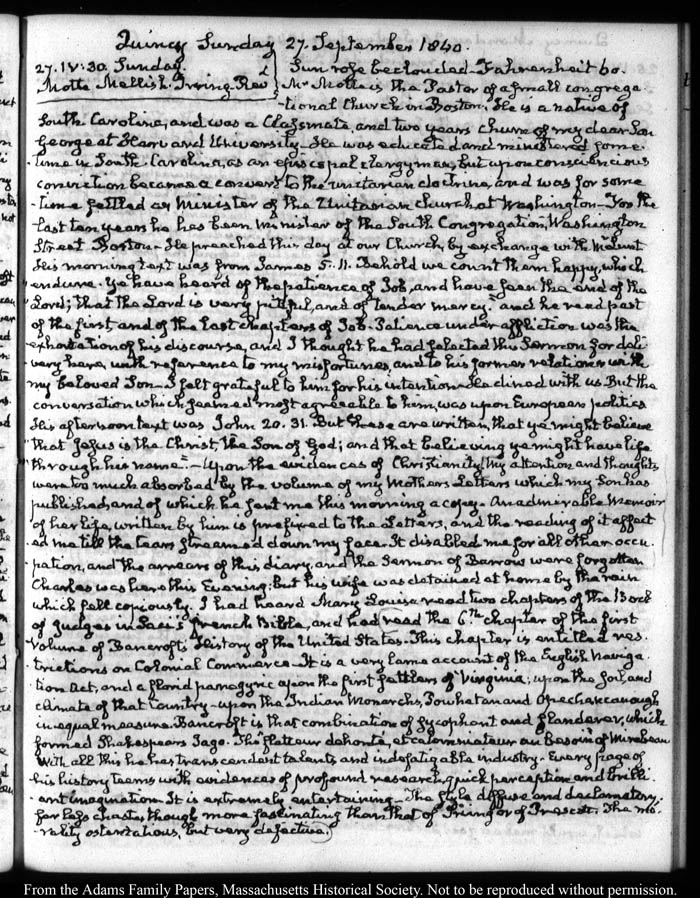 Quincy Sunday 27. September 1840.
27. IV:30. Sunday.
Motte Mellish Irving Revd
Sun rose beclouded Fahrenheit 60.
Mr Motte is the Pastor of a small congrega
-tional Church in Boston. He is a native of
South Carolina, and was a Classmate, and two years chum of my dear Son
George at Harvard University. He was educated and ministered some
time in South Carolina, as an episcopal clergyman, but upon conscientious
conviction became a convert to the unitarian doctrine, and was for some
-time settled as Minister of the Unitarian church at Washington—For the
last ten years he has been minister of the South Congregation, Washington
Street Boston—He preached this day at our Church, by exchange with Mr Lunt
His morning text was from James 5. 11. Behold we count them happy, which
endure. Ye have heard of the patience of Job, and have seen the end of the
Lord; that the Lord is very pitiful, and of tender mercy. and he read part
of the first, and of the last chapters of Job. Patience under affliction was the
exhortation of his discourse, and I thought he had selected this Sermon for deli
-very here, with reference to my misfortunes, and to his former relations with
my beloved Son—I felt grateful to him for his intention. He dined with us. But the
conversation which seemed most agreeable to him, was upon European politics
His afternoon text was John 20. 31. But these are written, that ye might believe
"that Jesus is the Christ, the Son of God; and that believing ye might have life
"through his name"—Upon the evidences of Christianity. My attention and thoughts
were too much absorbed by the volume of my Mothers Letters which my Son has
published, and of which he sent me this morning a copy. An admirable Memoir
of her life, written by him is prefixed to the Letters, and the reading of it affect
-ed me till the tears streamed down my face. It disabled me for all other occu
-pation, and the arrears of this diary, and the Sermon of Barrow were forgotten
Charles was here this Evening; but his wife was detained at home by the rain
which fell copiously. I had heard Mary Louisa read two chapters of the Book
of Judges in Saci's french Bible, and had read the 6th chapter of the first
volume of Bancroft's History of the United States. This chapter is entitled res
-trictions on Colonial Commerce. It is a very lame account of the English Naviga
-tion Act; and a florid panegyric upon the first settlers of Virginia; upon the soil and
climate of that Country—upon the Indian Monarchs, Powhatan and Opechancanough
in equal measure. Bancroft is that combination of sycophant and slanderer, which
formed Shakespears Iago. The "flatteur dehonté, et calomniateur au besoin" of Mirabeau
With all this he has transcendent talents and indefatigable industry. Every page of
his history teems with evidences of profound research, quick perception and brilli
-ant imagination. It is extremely entertaining—The style diffuse and declamatory.
far less chaste, though more fascinating than that of Irving or of Prescott. The mo
-rality ostentatious, but very defective.
From the Adams Family Papers, Massachusetts Historical Society. Not to be reproduced without permission.